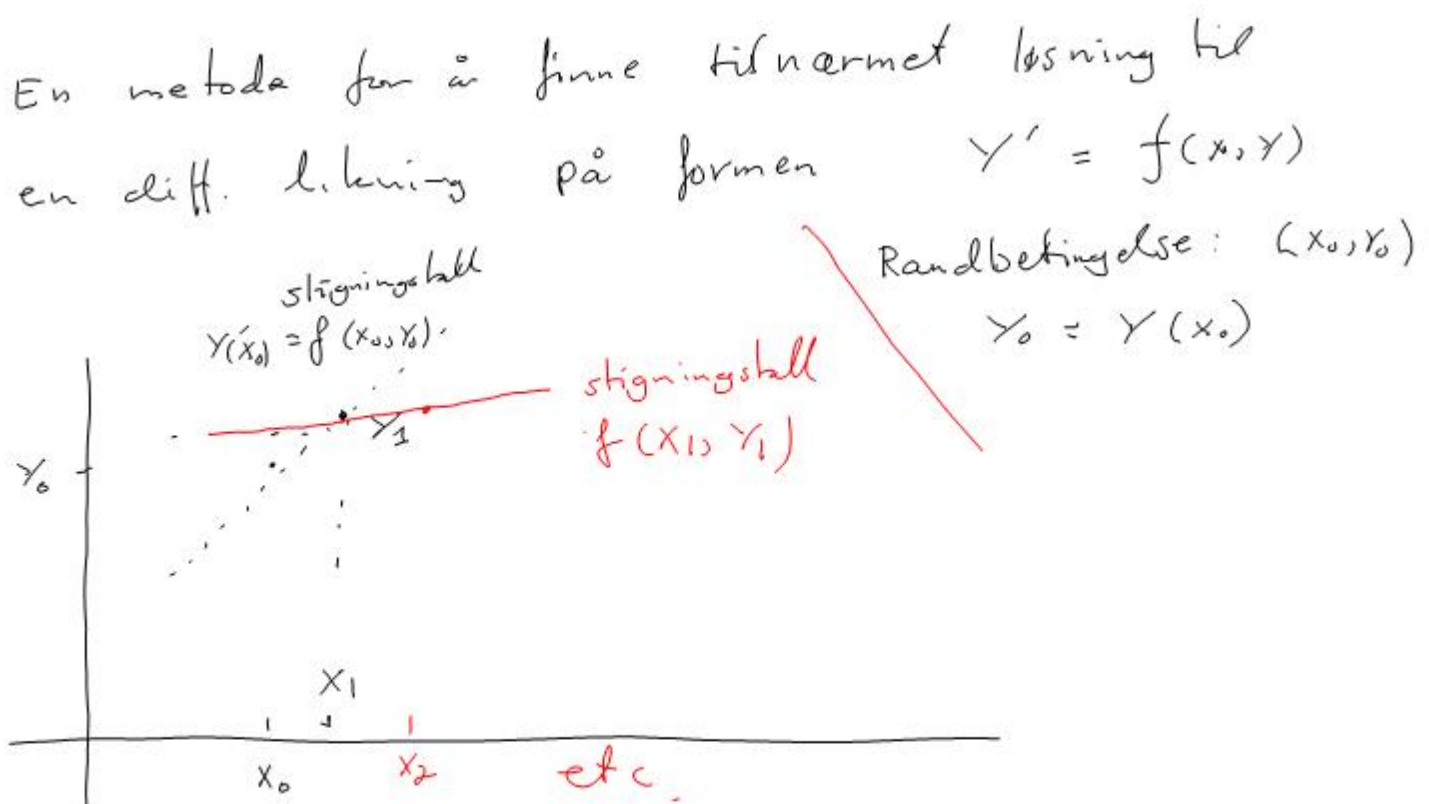 En metode for å finne tilnærmet løsning til
en diff. likning på formen Y' = f(x,Y)
Randbetingelse: (x₀,Y₀)
Y₀ = Y(x₀)
stigningstall
Y'(x₀) = f(x₀,Y₀).
stigningstall
f(x₁, Y₁)
Y₁
Y₀
x₁
x₀ x₂ etc.